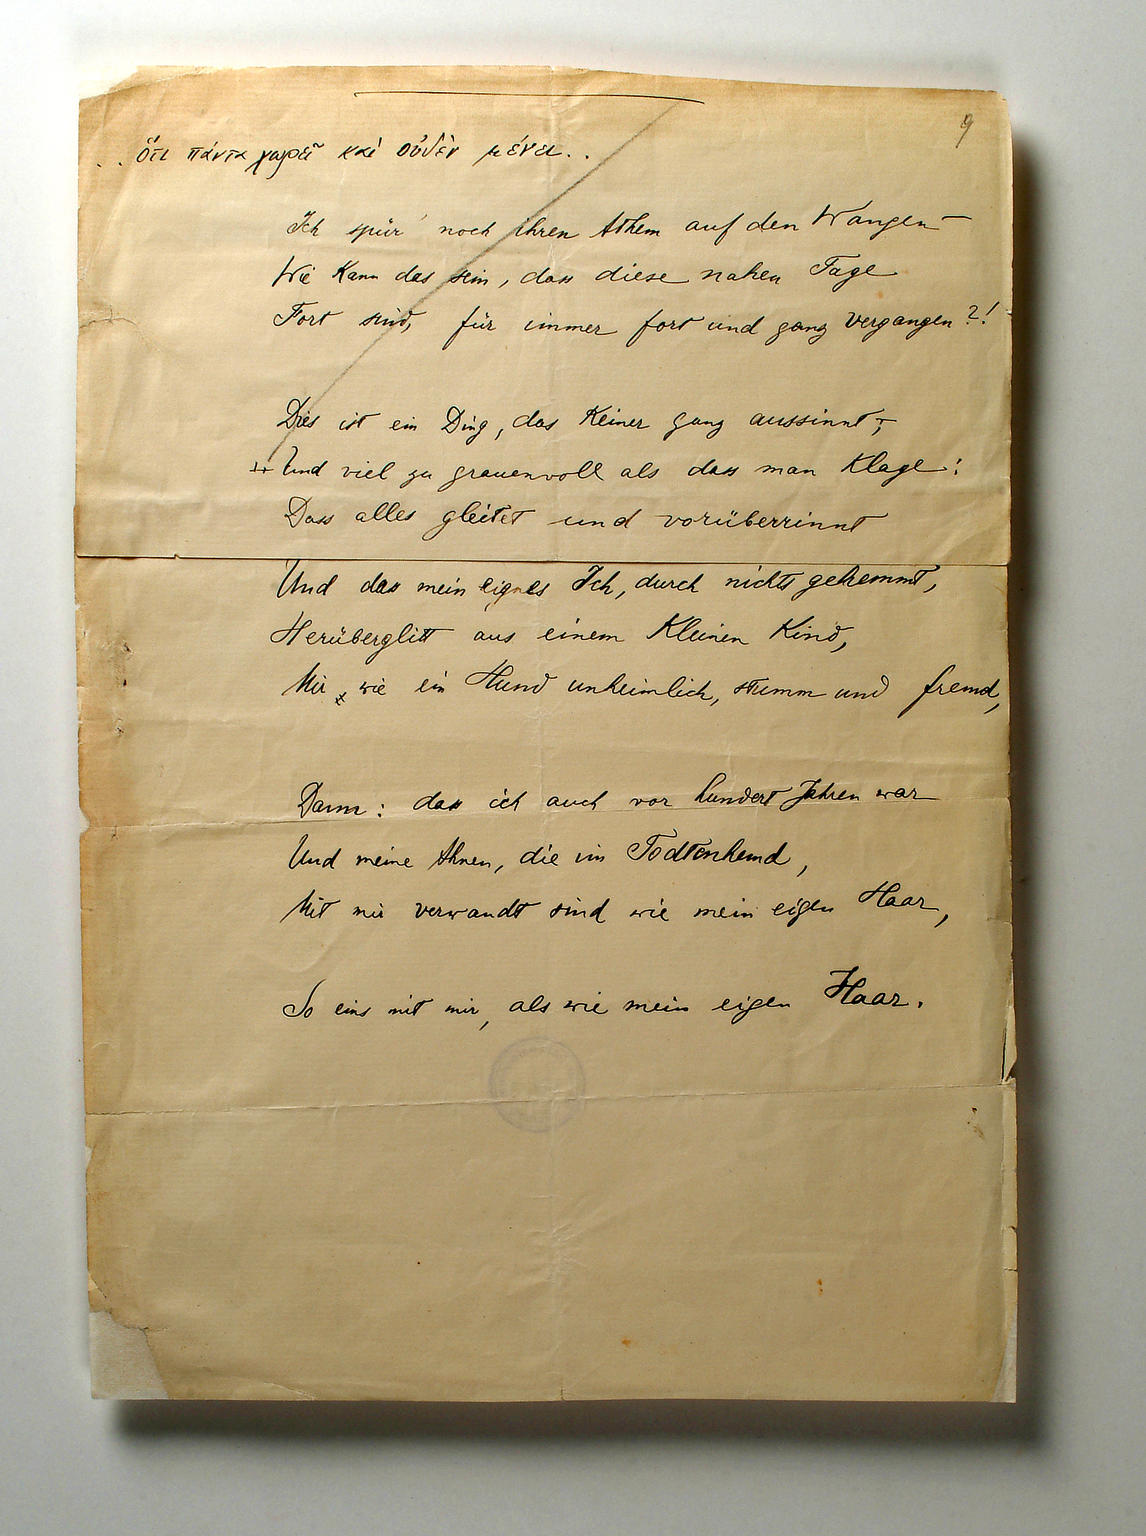 9
. . ὅτι πάντα χωρεῖ καὶ οὐδὲν μένει. .
Ich spür' noch ihren Athem auf den Wangen –
Wie kann das sein, dass diese nahen Tage
Fort sind, für immer fort und ganz vergangen?!
Dies ist ein Ding, das Keiner ganz aussinnt,
Und viel zu grauenvoll als dass man klage:
Dass alles gleitet und vorüberrinnt
Und dass mein eignes Ich, durch nichts gehemmt,
Herüberglitt aus einem kleinen Kind,
Mir wie ein Hund unheimlich, stumm und fremd,
Dann: dass ich auch vor hundert Jahren war
Und meine Ahnen, die im Todtenhemd,
Mit mir verwandt sind wie mein eigen Haar,
So eins mit mir, als wie mein eigen Haar.